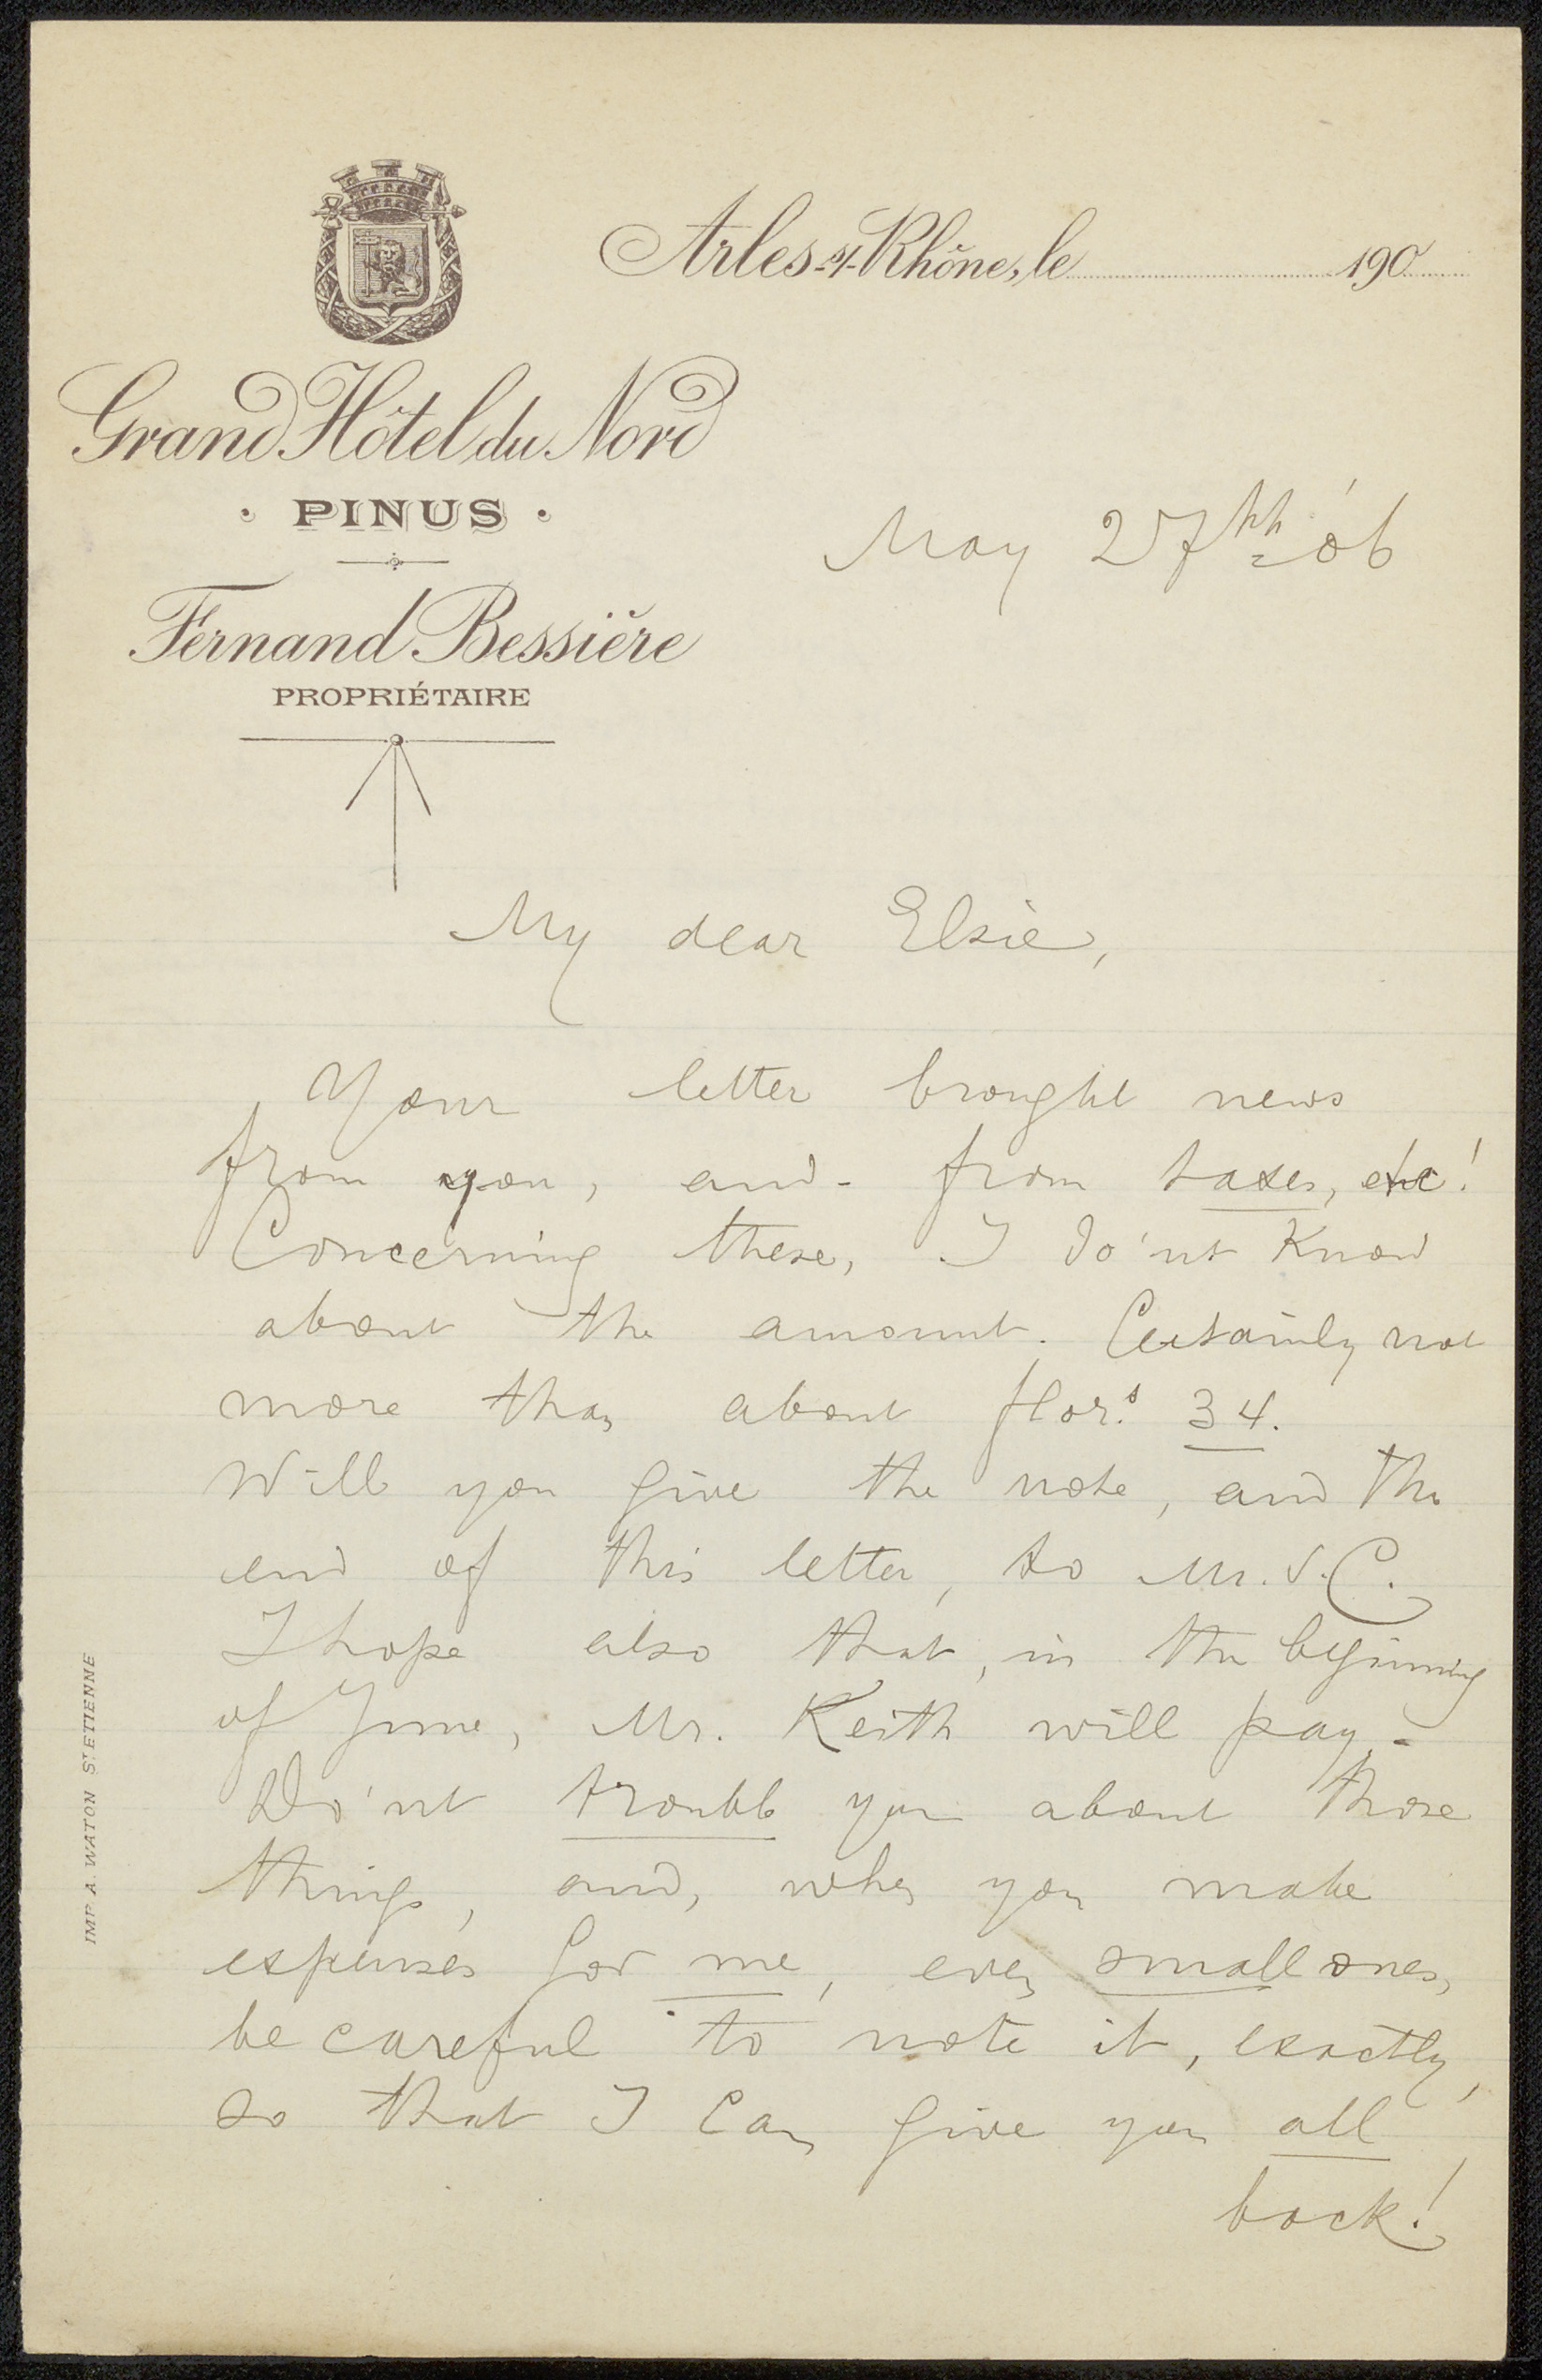 Arles-s/-Rhône, le 190
Grand Hôtel du Nord
· PINUS ·
Fernand Bessière
PROPRIÉTAIRE
May 27th '06
My dear Elsie,
Your letter brought news
from you, and - from taxes, etc!
Concerning these, I do'nt know
about the amount. Certainly not
more than about flor.s 34.
Will you give the note, and the
end of this letter, to Mr. V. C.
I hope also that, in the beginning
of June, Mr. Keith will pay. -
Do'nt trouble you about those
things, and, when you make
expenses for me, even small ones,
be careful to note it, exactly,
so that I can give you all
back!
IMP. A. WATON ST ETIENNE